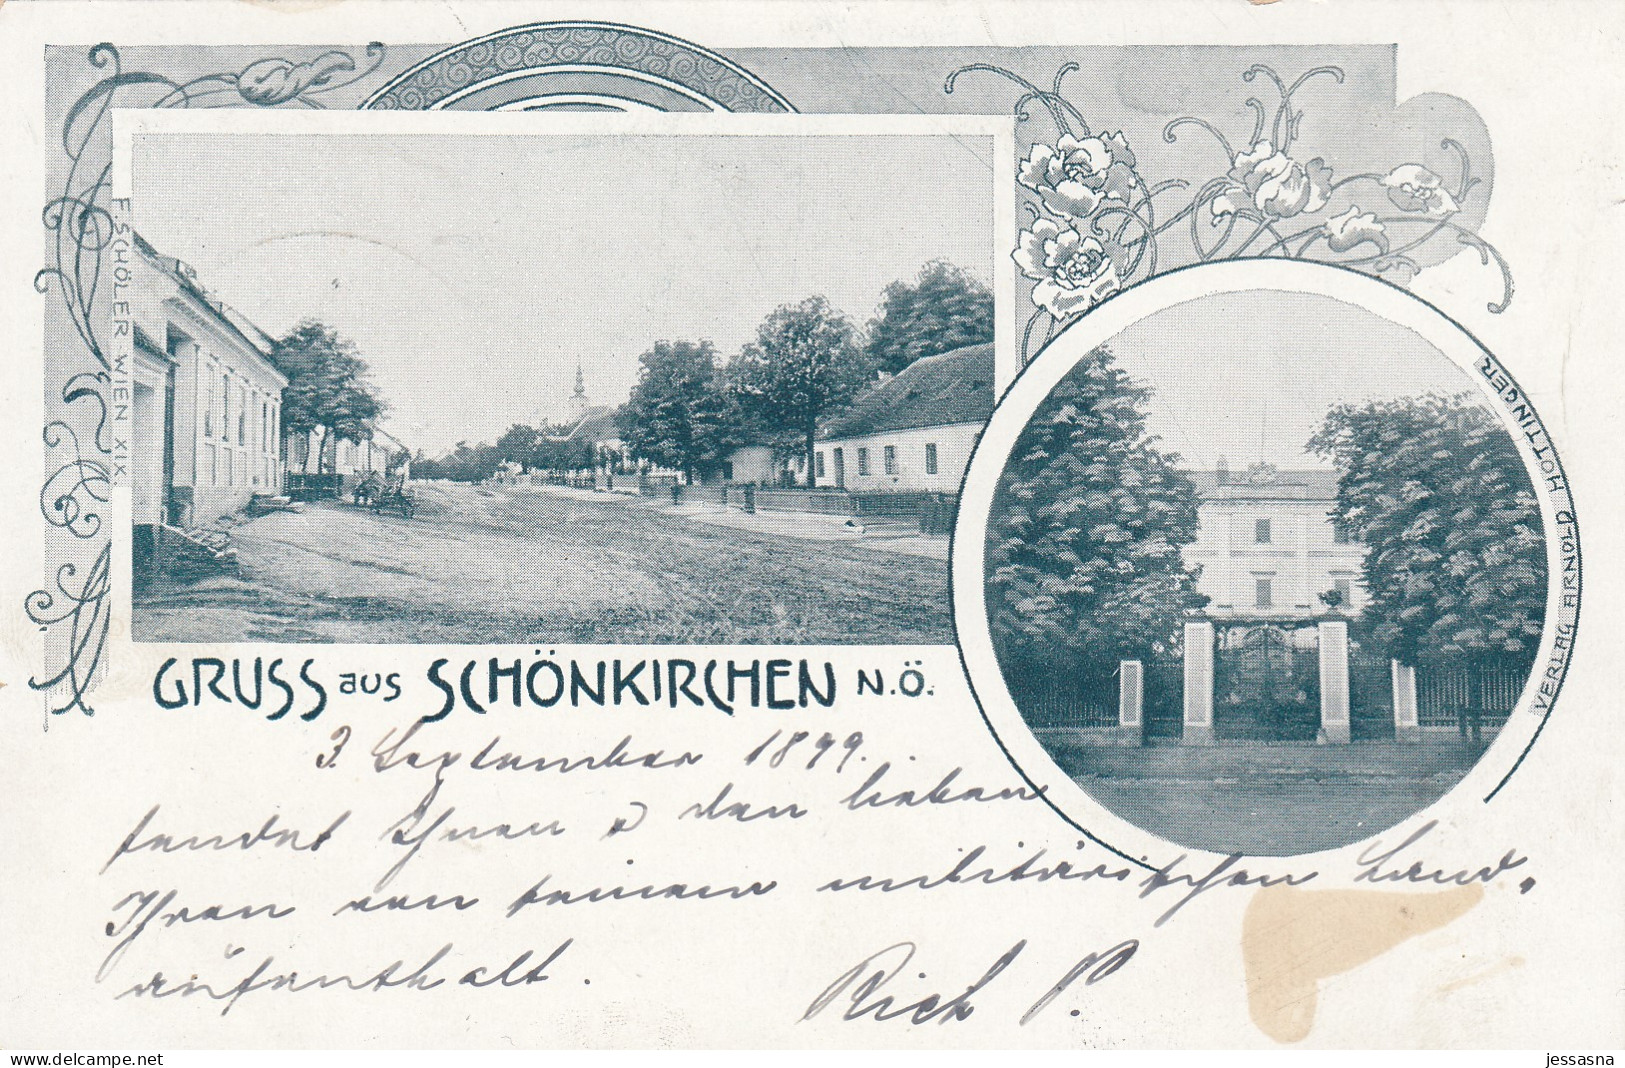 F. SCHÖLER WIEN XIX.
VERLAG ARNOLD HOTTINGER
GRUSS aus SCHÖNKIRCHEN N.Ö.
3. September 1899.
sendet Ihnen u den lieben
Ihren von seinem militärischen Land-
aufenthalt.
Rich P.
delcampe.net
jessasna